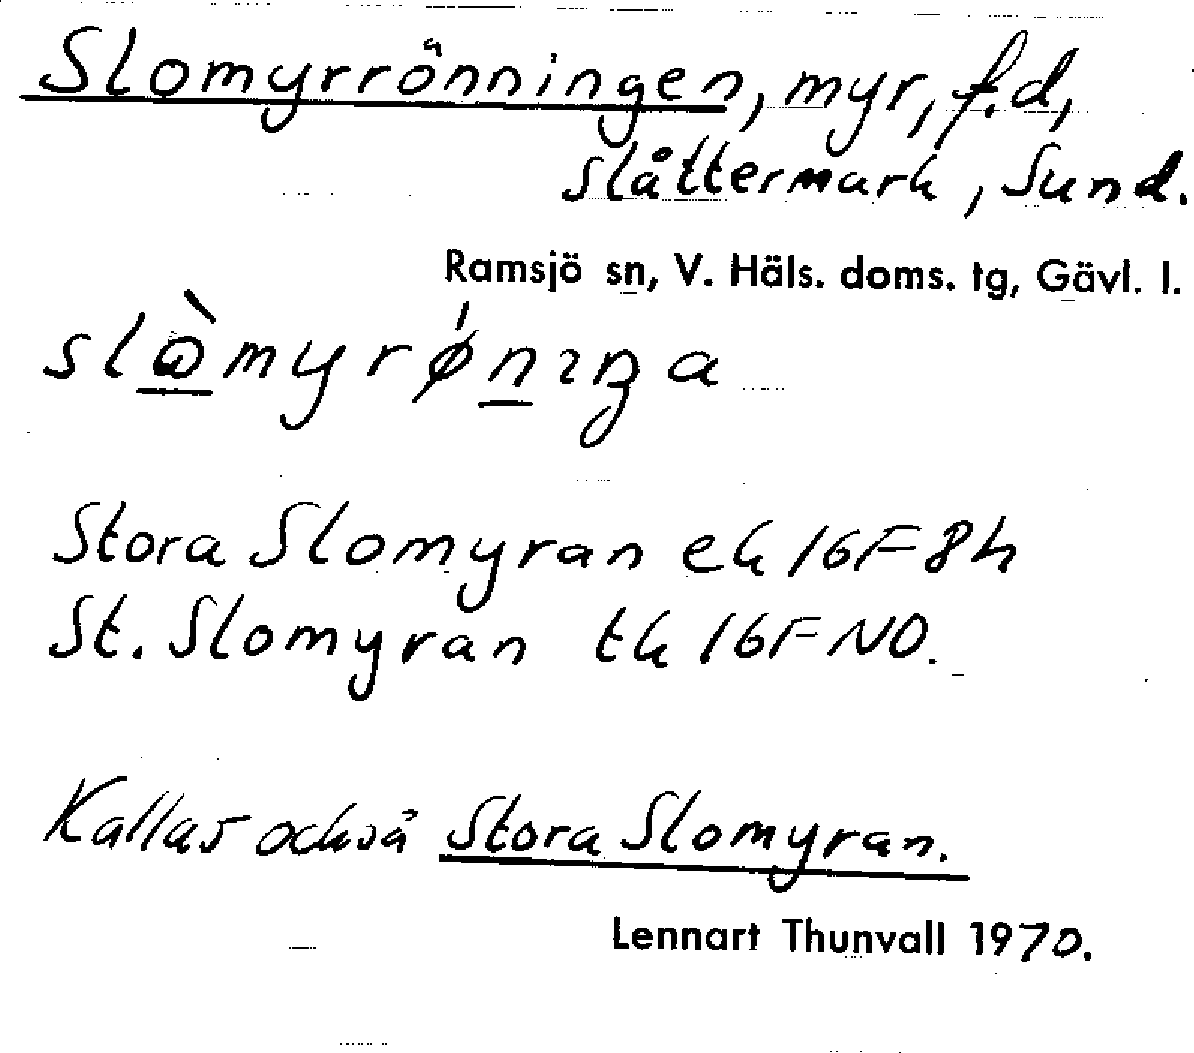 Slomyrrönningen, myr, f.d,
slåttermark, Sund.
Ramsjö sn, V. Häls. doms. tg, Gävl. l.
Stora Slomyran ek 16F 8h
St. Slomyran tk 16F NO.
Kallas också Stora Slomyran.
Lennart Thunvall 1970.